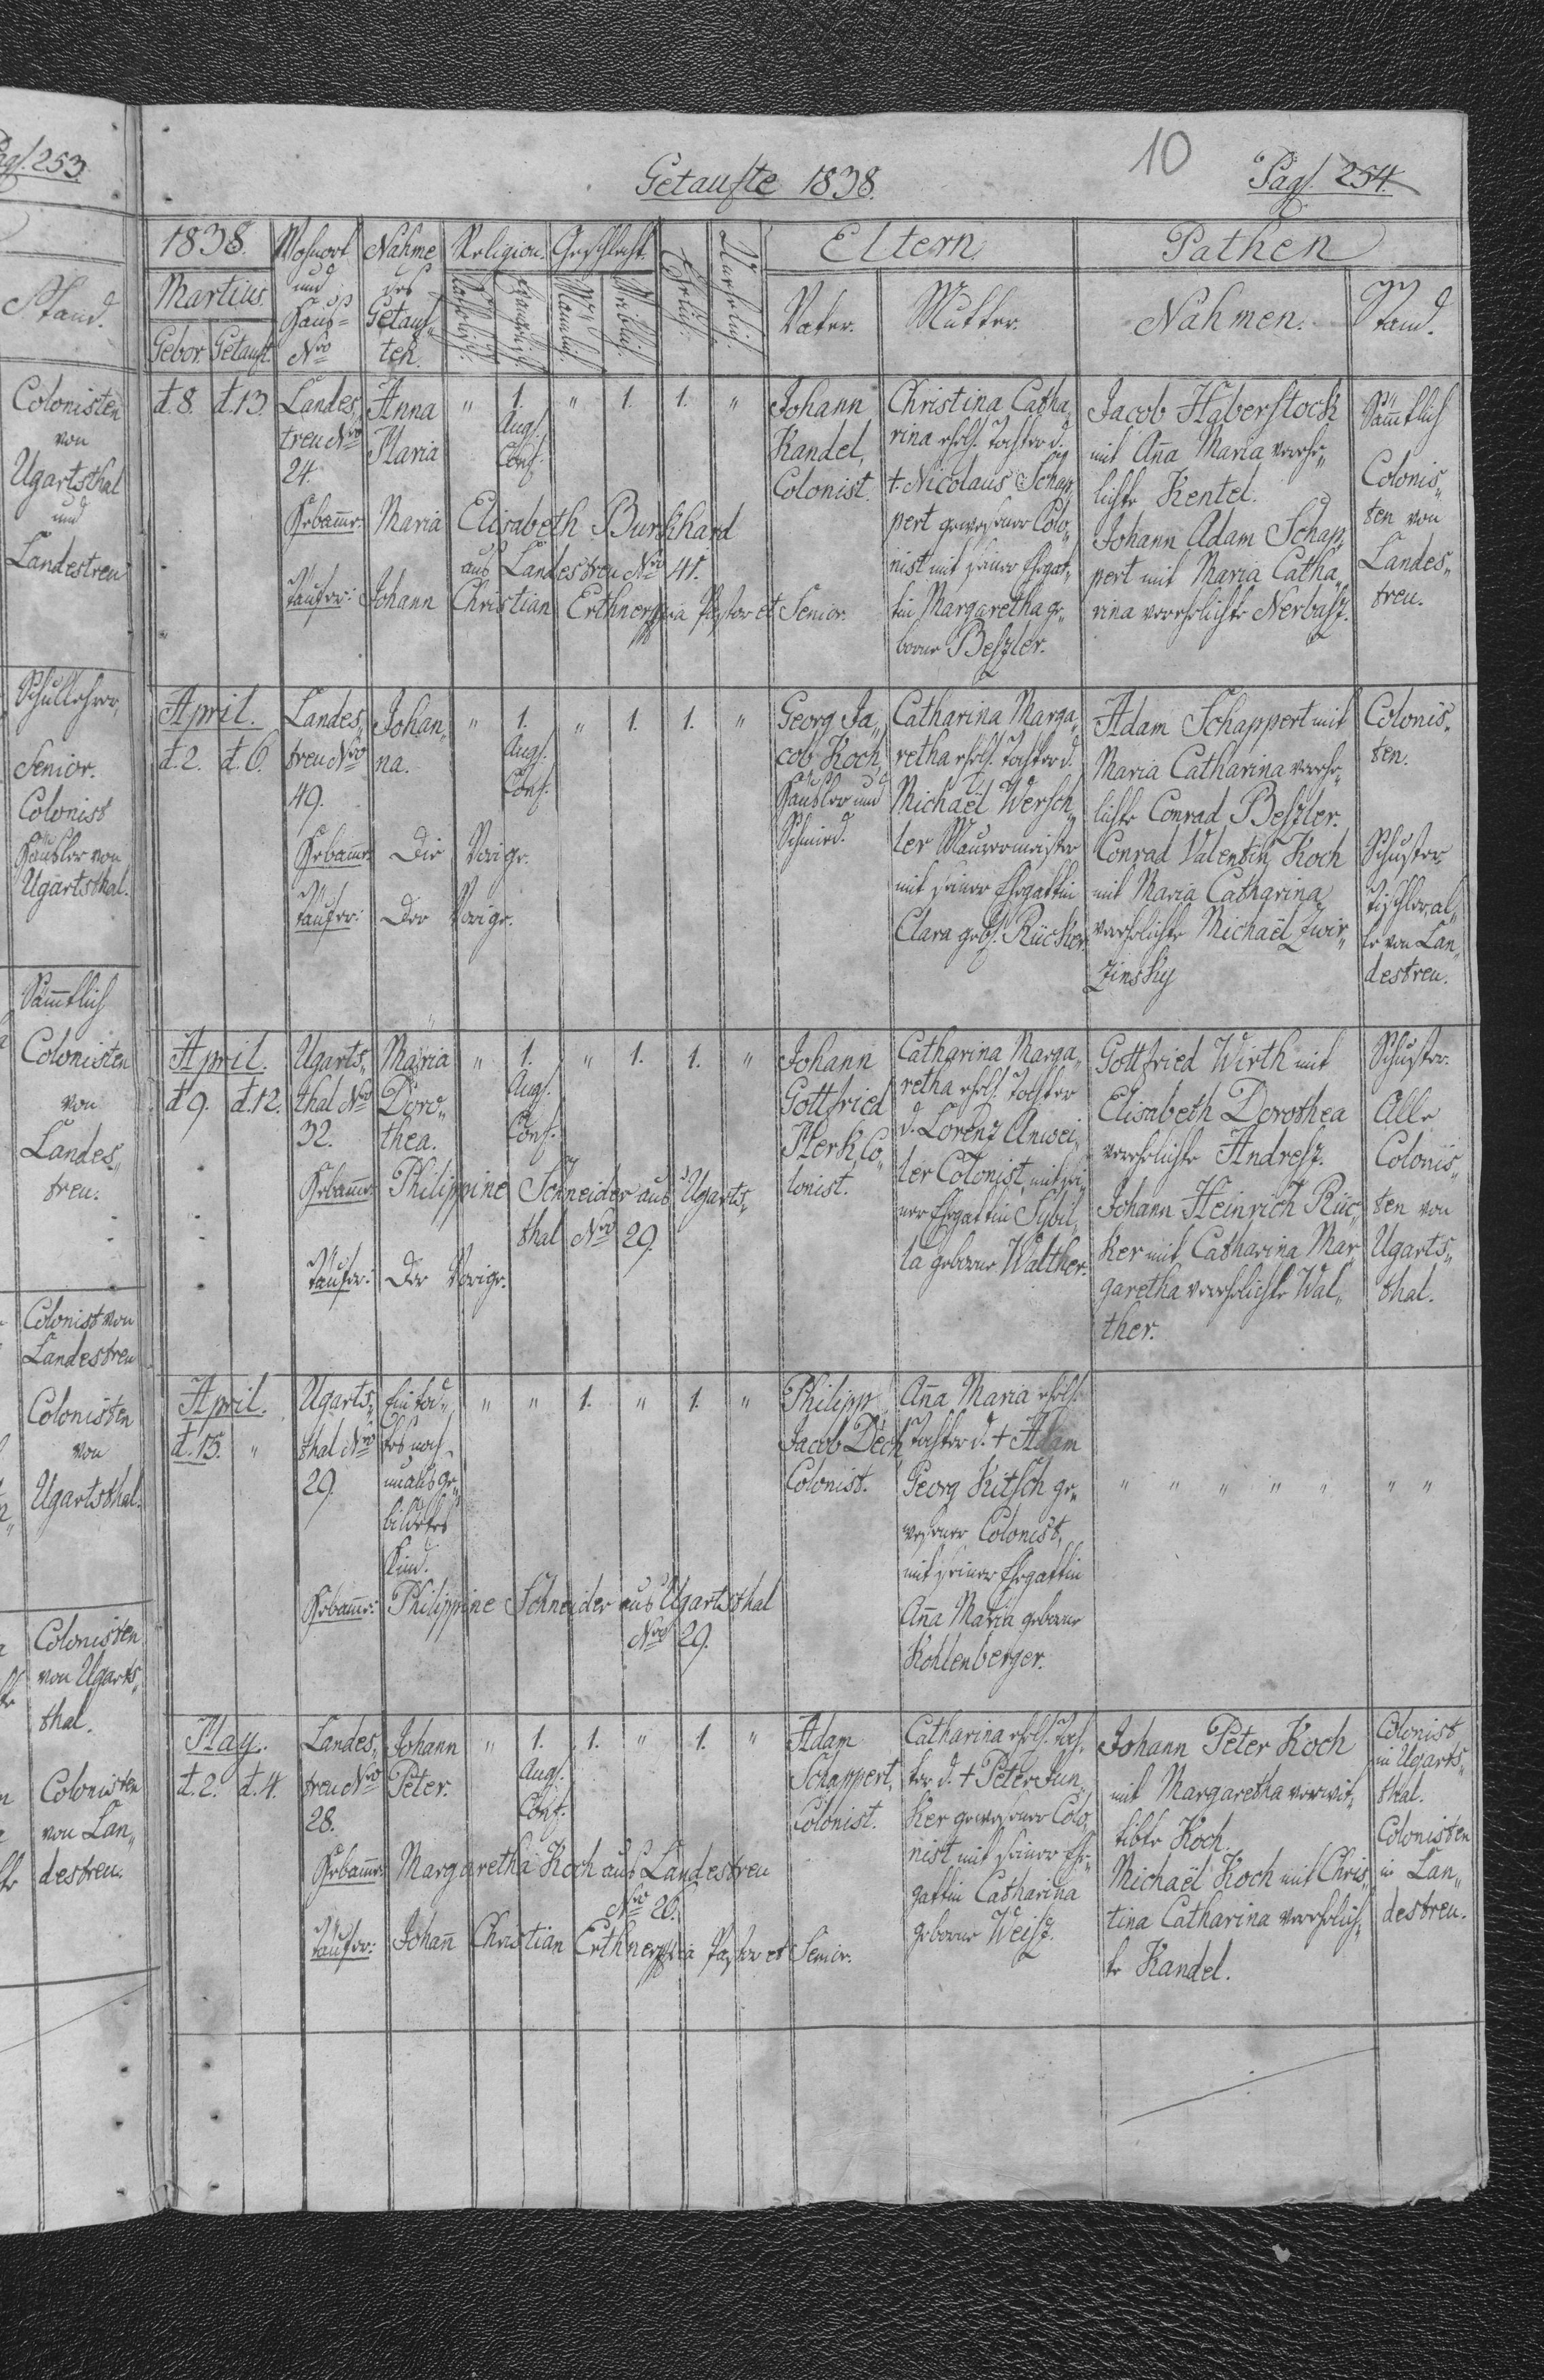 Pag. 253.
Stand.
Colonisten
von
Ugartsthal
und
Landestreu
Schullehrer,
Senior.
Colonist
Häusler von
Ugartsthal.
Sämtlich
Colonisten
von
Landes„
treu.
Colonist von
Landestreu
Colonisten
von
Ugartsthal.
Colonisten
von Ugarts„
thal.
Colonisten
von Lan„
destreu.
10
Getaufte 1838.
Pag. 254.
1838.
Martius.
Gebor. Getauft.
Wohnort
und
Haus=
Nro
Nahme
des
Getauf„
ten.
Religion.
Katholisch.
Evangelisch.
Geschlecht.
Männlich.
Weiblich.
Ehelich.
Unehelich.
Eltern
Vater.
Mutter.
Pathen
Nahmen.
Stand.
d. 8. d. 13.
Landes„
treu Nro
24.
Anna
Maria
" 1. " 1. 1. "
Aug.
Conf.
Johann
Kandel,
Colonist.
Christina Catha„
rina ehel. Tochter d.
†. Nicolaus Schap„
pert gewesener Colo„
nist mit seiner Ehegat„
tin Margaretha ge„
borne Beszler.
Jacob Haberstock
mit Aña Maria verehe„
lichte Kentel.
Johann Adam Schap„
pert mit Maria Catha„
rina verehelichte Nerbasz.
Sämtlich
Colonis„
ten von
Landes„
treu.
Hebamme: Maria Elisabeth Burkhard
aus Landestreu Nro 41.
Taufer: Johann Christian Erthner mpria Pastor et Senior.
April.
d. 2. d. 6.
Landes„
treu Nro
49.
Johan„
na.
" 1. " 1. 1. "
Aug.
Conf.
Georg Ja„
cob Koch,
Häusler und
Schmied.
Catharina Marga„
retha ehel. Tochter d.
Michaël Wersch„
ler Maurermeister
mit seiner Ehegattin
Clara geb. Rücker.
Adam Schappert mit
Maria Catharina verehe„
lichte Conrad Beszler.
Conrad Valentin Koch
mit Maria Catharina
verehelichte Michaël Zwir„
zinsky
Colonis„
ten.
Schuster,
Tischler, al„
le von Lan„
destreu.
Hebamme: Die Vorige.
Taufer: Der Vorige.
April.
d 9. d. 12.
Ugarts„
thal Nro
32.
Maria
Doro„
thea.
" 1. " 1. 1. "
Aug.
Conf.
Johann
Gottfried
Merk, Co„
lonist.
Catharina Marga„
retha ehel. Tochter
d. Lorenz Anwei„
ler Colonist, mit sei„
ner Ehegattin Sybil„
la geborne Walther.
Gottfried Wirth mit
Elisabeth Dorothea
verehelichte Andresz.
Johann Heinrich Rüc„
ker mit Catharina Mar„
garetha verehelichte Wal„
ther.
Schuster.
Alle
Colonis„
ten von
Ugarts„
thal.
Hebamme: Philippine Schneider aus Ugarts„
thal Nro 29.
Taufer: Der Vorige.
April.
d. 15. "
Ugarts„
thal Nro
29.
Ein tod„
tes noch
unausge„
bildetes
Kind.
" " 1. " 1. "
Philipp
Jacob Dech
Colonist.
Aña Maria ehel.
Tochter d. † Adam
Georg Kitsch ge„
wesener Colonist,
mit seiner Ehegattin
Aña Maria geborne
Kohlenberger.
" " " " " " "
Hebamme: Philippine Schneider aus Ugartsthal
Nro 29.
May.
d. 2. d. 4.
Landes„
treu Nro
28.
Johann
Peter.
" 1. 1. " 1. "
Aug.
Conf.
Adam
Schappert,
Colonist.
Catharina ehel. Toch„
ter d. † Peter Jun„
ker gewesener Colo„
nist mit seiner Ehe„
gattin Catharina
geborne Weisz.
Johann Peter Koch
mit Margaretha verwit„
tibte Koch.
Michaël Koch mit Chris„
tina Catharina verehelich„
te Kandel.
Colonist
in Ugarts„
thal.
Colonisten
in Lan„
destreu.
Hebamme: Margaretha Koch aus Landestreu
Nro 26.
Taufer: Johañ Christian Erthner mpria Pastor et Senior.